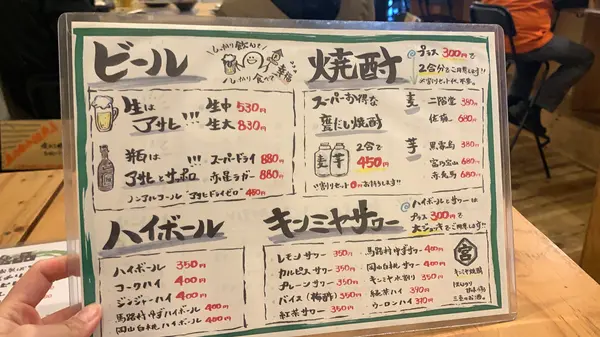 ビール
しっかり飲んで!
しっかり食べて
幸福
生は
アサヒ!!!
生中 530円
生大 830円
瓶は
アサヒとサッポロ!!!
スーパードライ 880円
赤星ラガー 880円
ノンアルコール"アサヒドライゼロ" 480円
焼酎
プラス300円で
2合分でご用意します!!
スーパーお得な
甕だし焼酎
2合で
450円
※割りセット0円お持ちします!!
麦 二階堂 380円
佐宿 680円
芋 黒霧島 380円
富乃宝山 680円
赤兎馬 680円
ハイボール
ハイボール 350円
コークハイ 400円
ジンジャーハイ 400円
馬路村ゆずハイボール 400円
岡山白桃ハイボール 400円
キンミヤサワー
ハイボールとサワーは
プラス300円で
大ジョッキでご用意します!!
レモンサワー 350円
カルピスサワー 350円
プレーンサワー 350円
バイス(梅酢) 350円
紅茶サワー 350円
馬路村ゆずサワー 400円
岡山白桃サワー 400円
キンミヤ水割り 350円
紅茶ハイ 370円
ウーロンハイ 370円
宮
キンミヤ焼酎